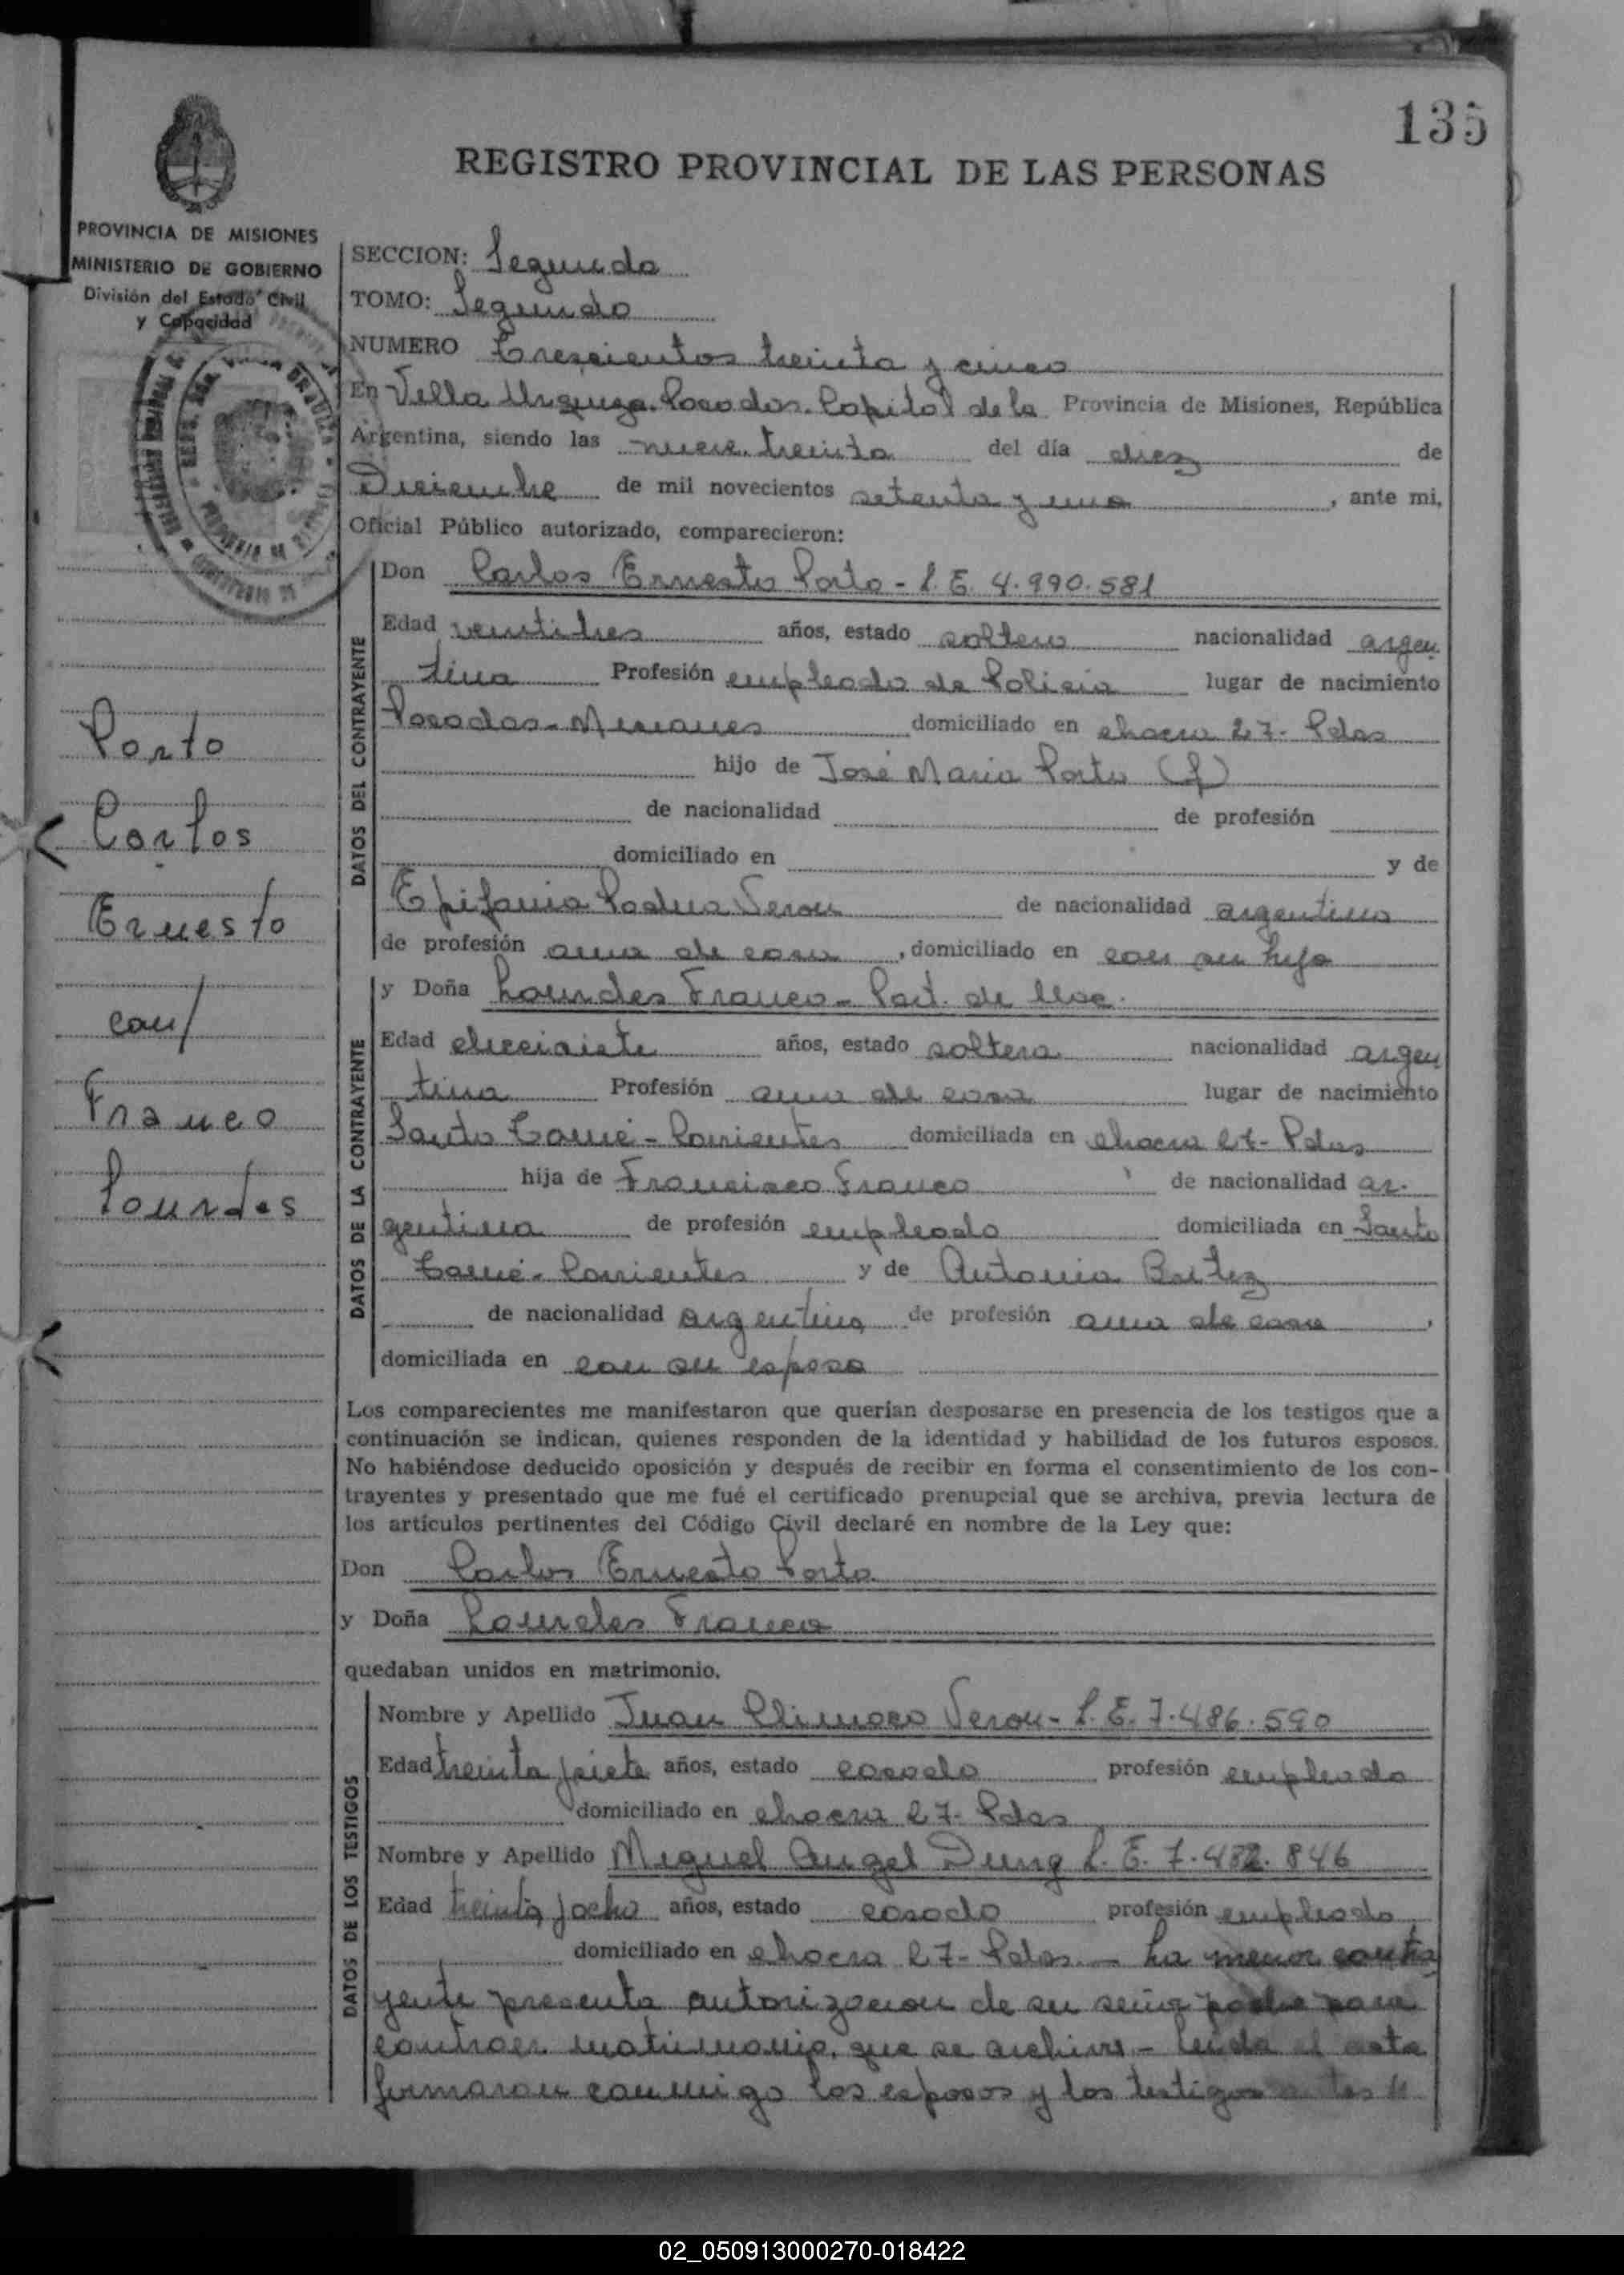 135
REGISTRO PROVINCIAL DE LAS PERSONAS
PROVINCIA DE MISIONES
MINISTERIO DE GOBIERNO
División del Estado Civil
y Capacidad
SECCION: Segunda
TOMO: Segundo
NUMERO Trescientos treinta y cinco
En Villa Urquiza. Posadas. Capital de la Provincia de Misiones, República
Argentina, siendo las nueve. treinta del día diez de
Diciembre de mil novecientos setenta y uno, ante mi,
Oficial Público autorizado, comparecieron:
DATOS DEL CONTRAYENTE
Don Carlos Ernesto Porto - L.E. 4.990.581
Edad veintitres años, estado soltero nacionalidad argen
tina Profesión empleado de Policia lugar de nacimiento
Posadas - Misiones domiciliado en chacra 27 - Pdas
hijo de José Maria Porto (f)
de nacionalidad de profesión
domiciliado en y de
Epifania Verou de nacionalidad argentina
de profesión ama de casa, domiciliado en con su hijo
DATOS DE LA CONTRAYENTE
y Doña Lourdes Franco - Part. de Nac.
Edad diecisiete años, estado soltera nacionalidad argen
tina Profesión ama de casa lugar de nacimiento
Santo Tomé - Corrientes domiciliada en chacra 27 - Pdas
hija de Francisco Franco de nacionalidad ar-
gentina de profesión empleado domiciliada en Santo
Tomé - Corrientes y de Antonia Britez
de nacionalidad argentina de profesión ama de casa,
domiciliada en con su esposo
Los comparecientes me manifestaron que querían desposarse en presencia de los testigos que a
continuación se indican, quienes responden de la identidad y habilidad de los futuros esposos.
No habiéndose deducido oposición y después de recibir en forma el consentimiento de los con-
trayentes y presentado que me fué el certificado prenupcial que se archiva, previa lectura de
los artículos pertinentes del Código Civil declaré en nombre de la Ley que:
Don Carlos Ernesto Porto
y Doña Lourdes Franco
quedaban unidos en matrimonio.
DATOS DE LOS TESTIGOS
Nombre y Apellido Juan Climaco Verou - L.E. 7.486.590
Edad treinta y siete años, estado casado profesión empleado
domiciliado en chacra 27 - Pdas
Nombre y Apellido Miguel Angel L.E. 7.482.846
Edad treinta y ocho años, estado casado profesión empleado
domiciliado en chacra 27 - Pdas. - La menor contra
yente presenta autorizacion de su señor padre para
contraer matrimonio, que se archiva - Leida el acta
firmaron conmigo los esposos y los testigos
Porto
Carlos
Ernesto
con/
Franco
Lourdes
02_050913000270-018422